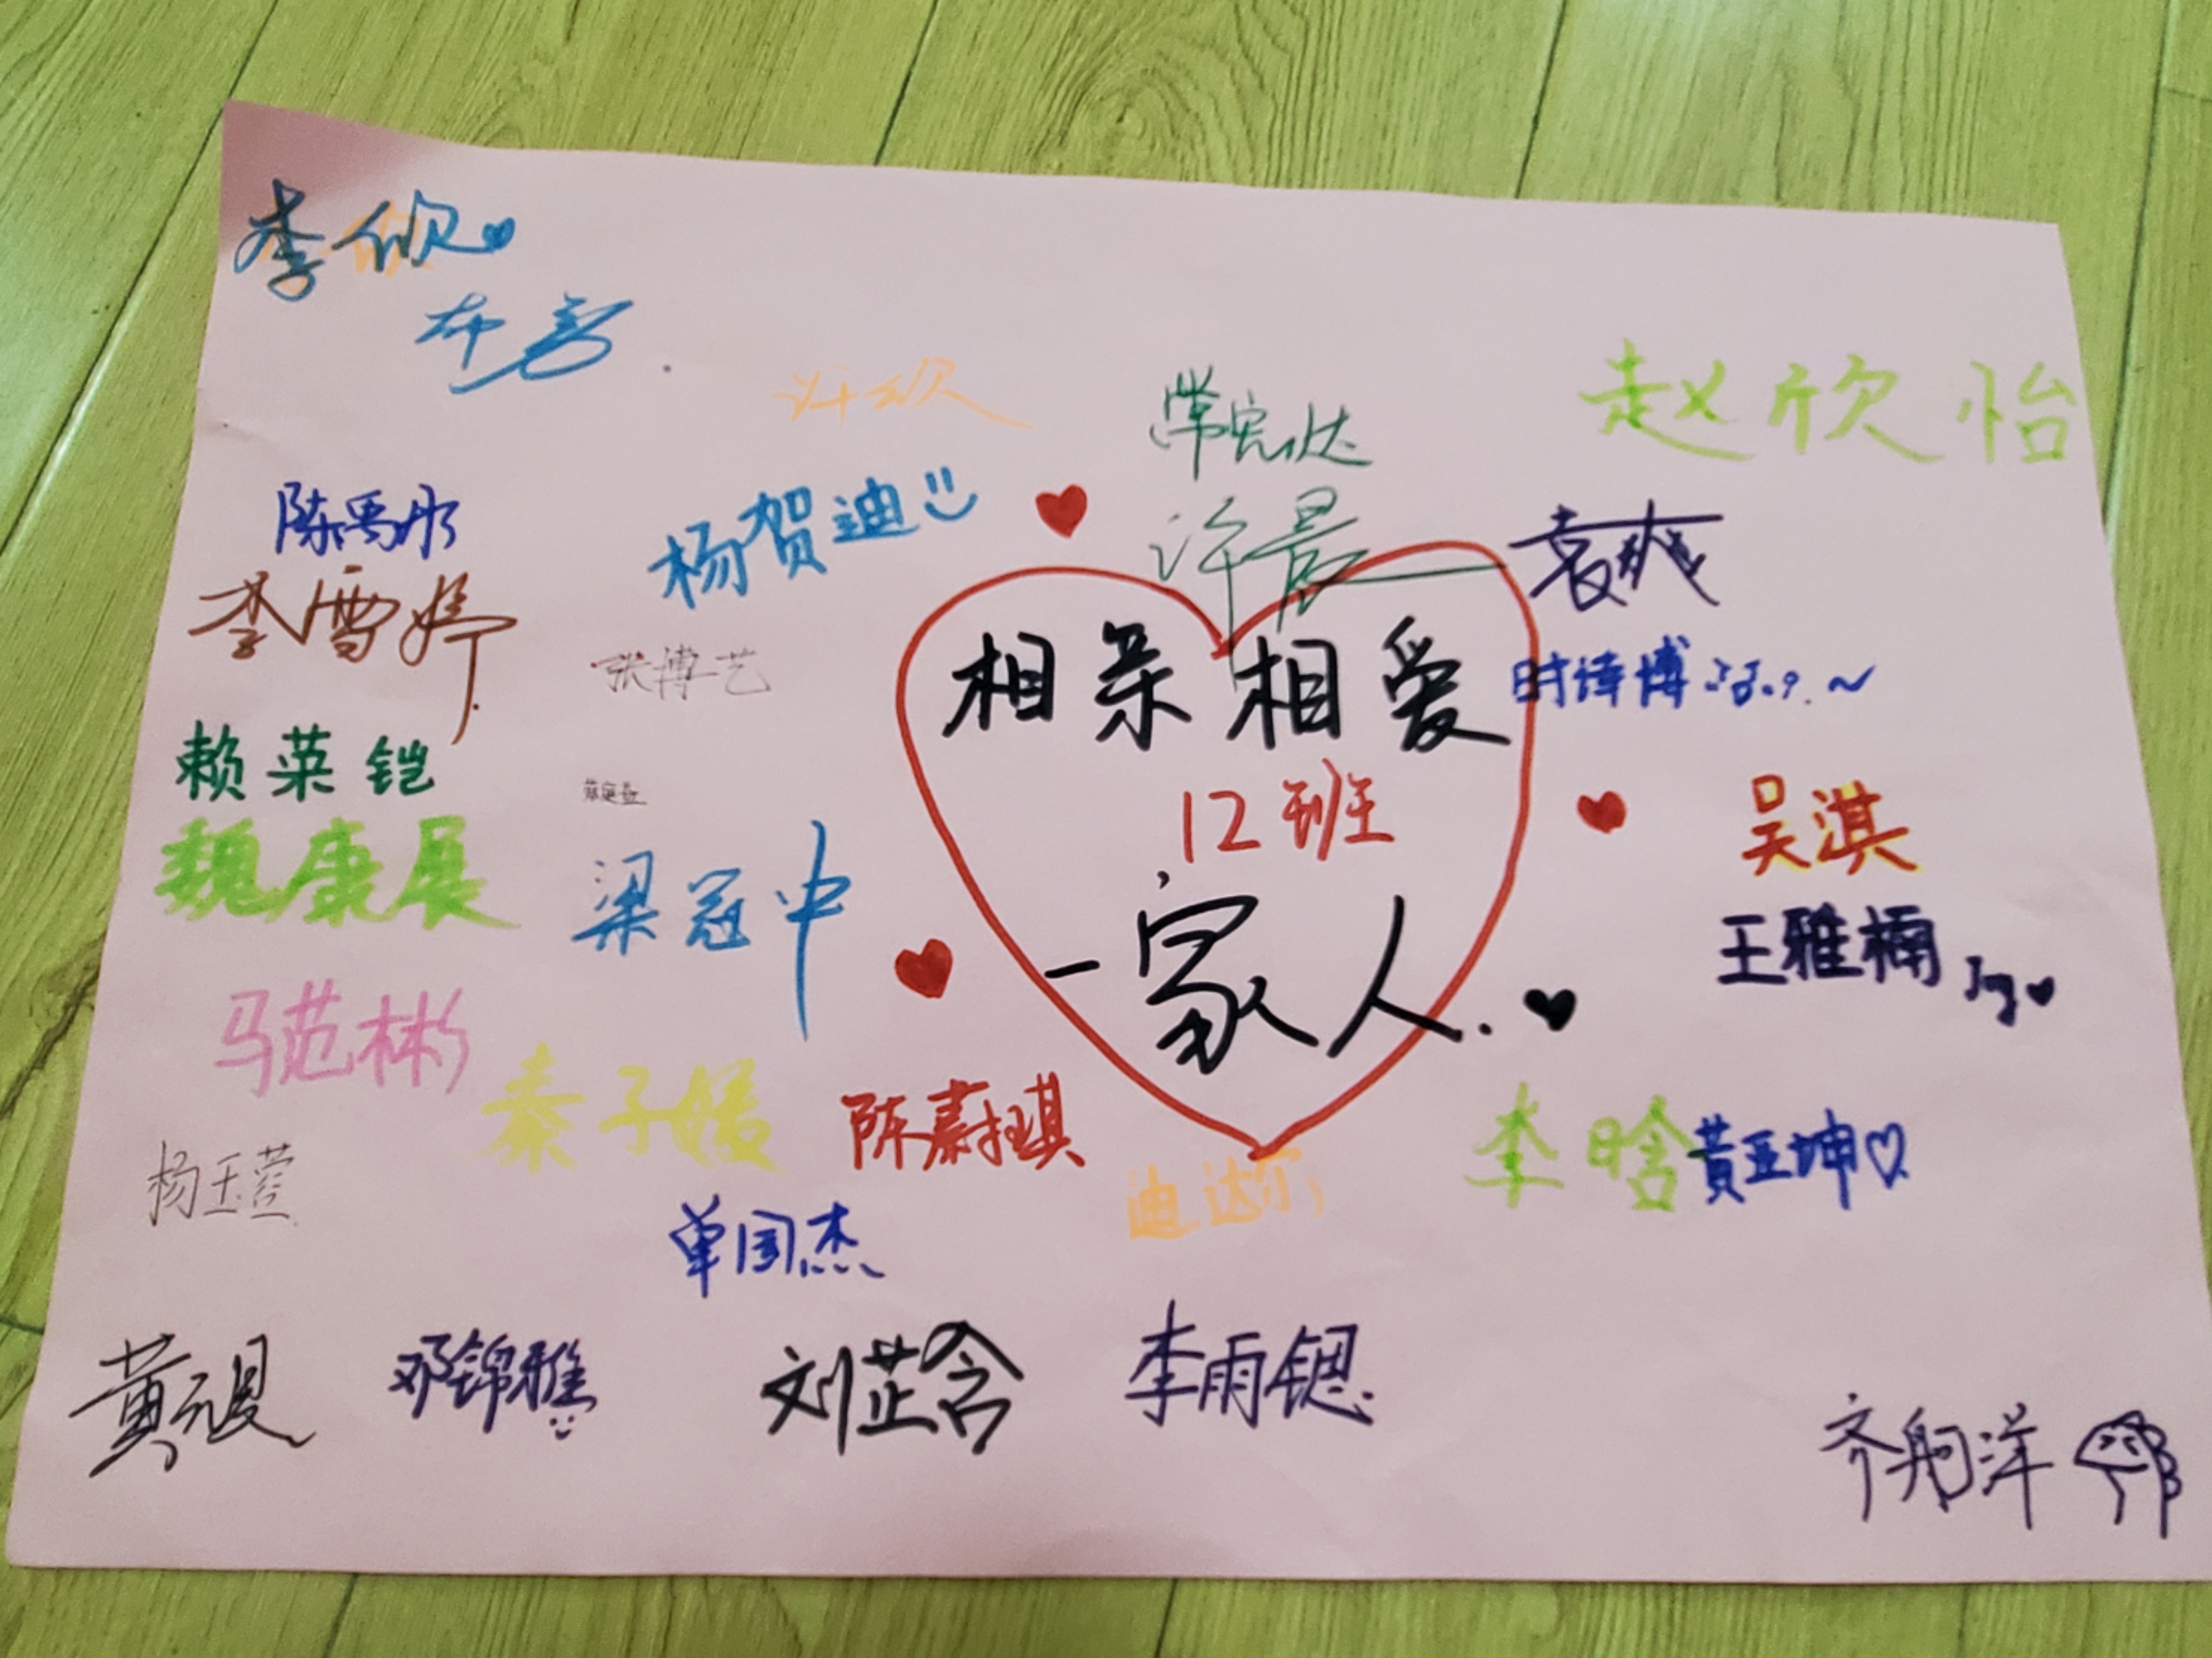 李欣
许欣
赵欣怡
陈禹彤
杨贺迪
许晨
袁爽
李雪婷
张博艺
相亲相爱
时锋博
赖菜铠
12班
吴淇
魏康展
梁冠中
王雅楠
一家人.
马范彬
秦子媛
李晗
黄亚坤
杨玉莹
迪达尔
单国杰
邓锦雅
刘芷含
李雨锶
齐舸洋